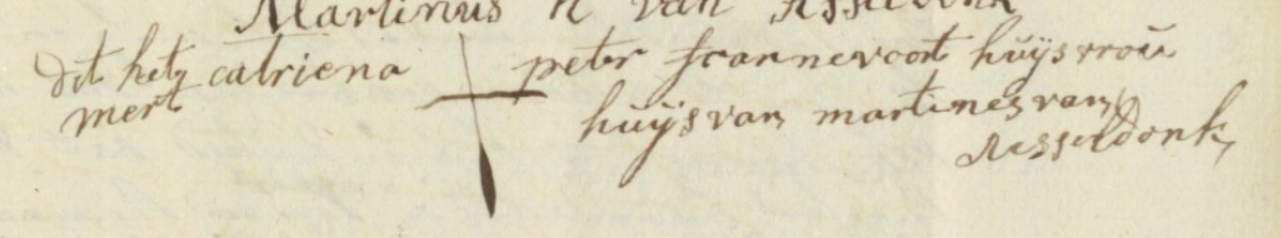 Martinus H van Asseldonk
dit het catriena peter francnevoort huijsvrou
mert huijsvan martines van
Asseldonk